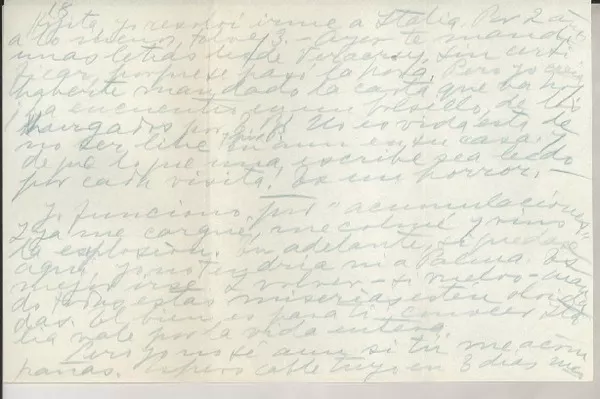 18
resolví irme a Italia. Por 2 años
a lo menos, tal vez 3. - Ayer te mandé
unas letras desde Veracruz, sin certi
ficar, porque se pasó la hora. Pero yo creía
haberte mandado la carta que va hoy
La encuentro en un bolsillo, de los
cargados por No es vida esto de
no ser libre en aun en su casa. Y
de que lo que una escribe sea leído
por cada visita. Es un horror. -
Yo funciono por "acumulaciones"
Y ya me cargué, me colmé y vino
la explosión. En adelante, si quedase
aquí, yo no tendría ni a Palma. Es
mejor irse y volver - si vuelvo - cuan
do todas estas miserias estén olvida
das. El bien es para ti conocer Ita
lia vale por la vida entera.
Pero yo no sé aun si tú me acom
pañas. Espero cable tuyo en 3 días más